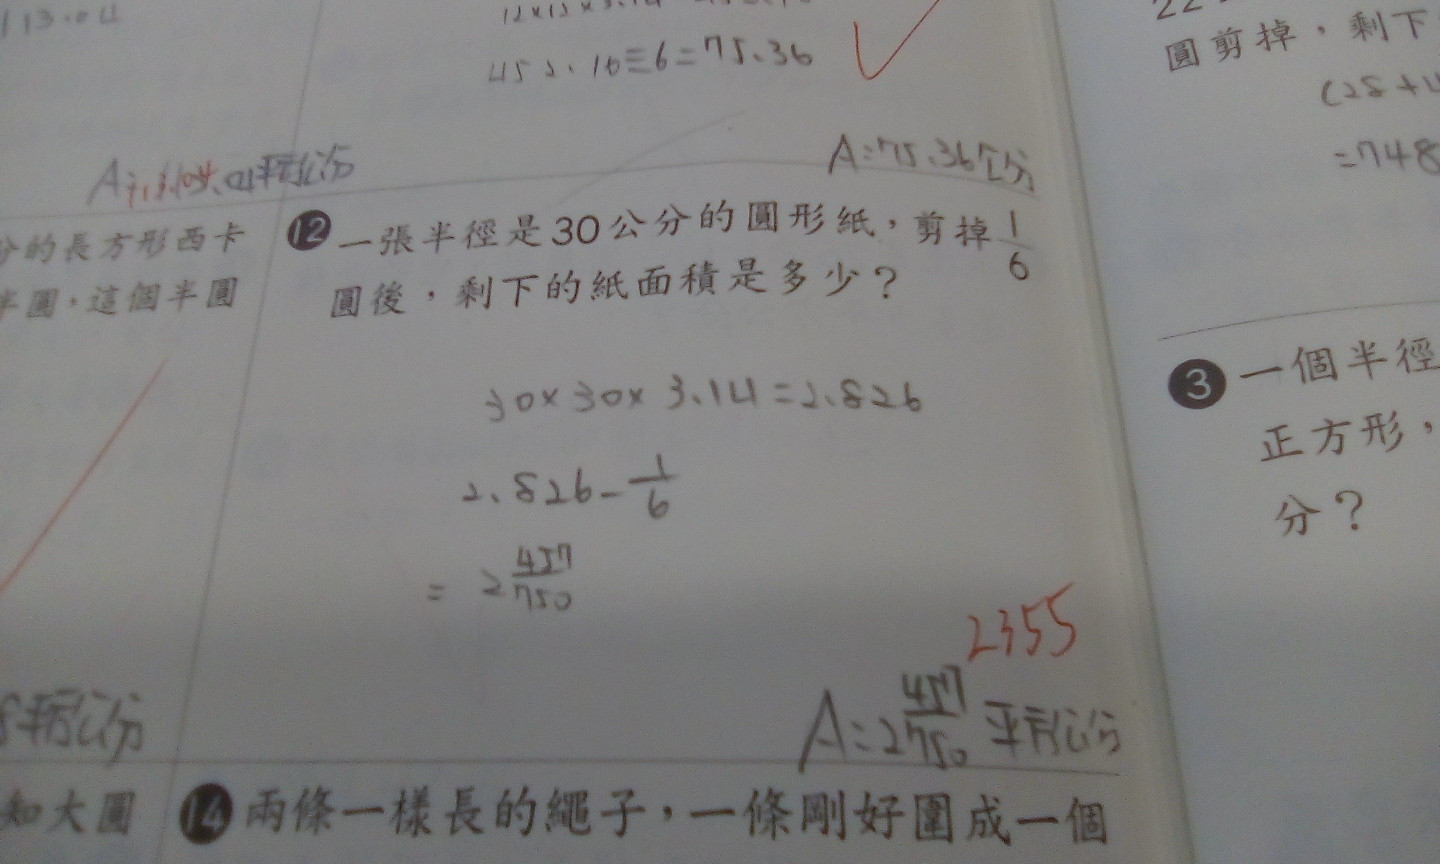 113.04
455.16÷6=75.36
A=75.36公分
平方公分
⓬ 一張半徑是30公分的圓形紙，剪掉1/6
圓後，剩下的紙面積是多少？
30×30×3.14=2.826
2.826-1/6
=2 457/750
2355
A=2 457/750 平方公分
⓮ 兩條一樣長的繩子，一條剛好圍成一個
分的長方形西卡
半圓，這個半圓
平方公分
知大圓
圓剪掉，剩下
(28+4
=748
❸ 一個半徑
正方形，
分？